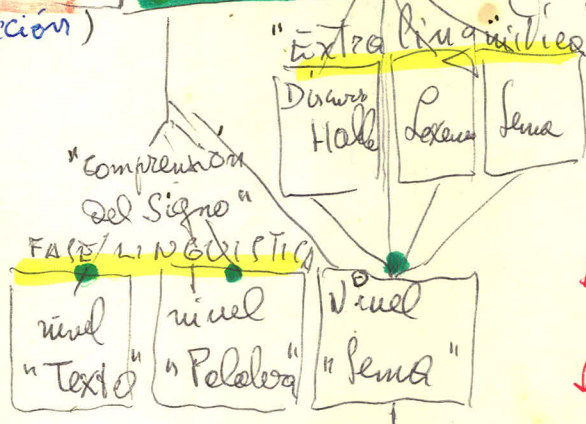 cción)
"Extra lingüística
Discurs
Halle
Lexem
Sema
"Comprensión
Del Signo"
FASE/LINGUISTICA
nivel
"Texto"
nivel
"Palabra"
Nivel
"Sema"